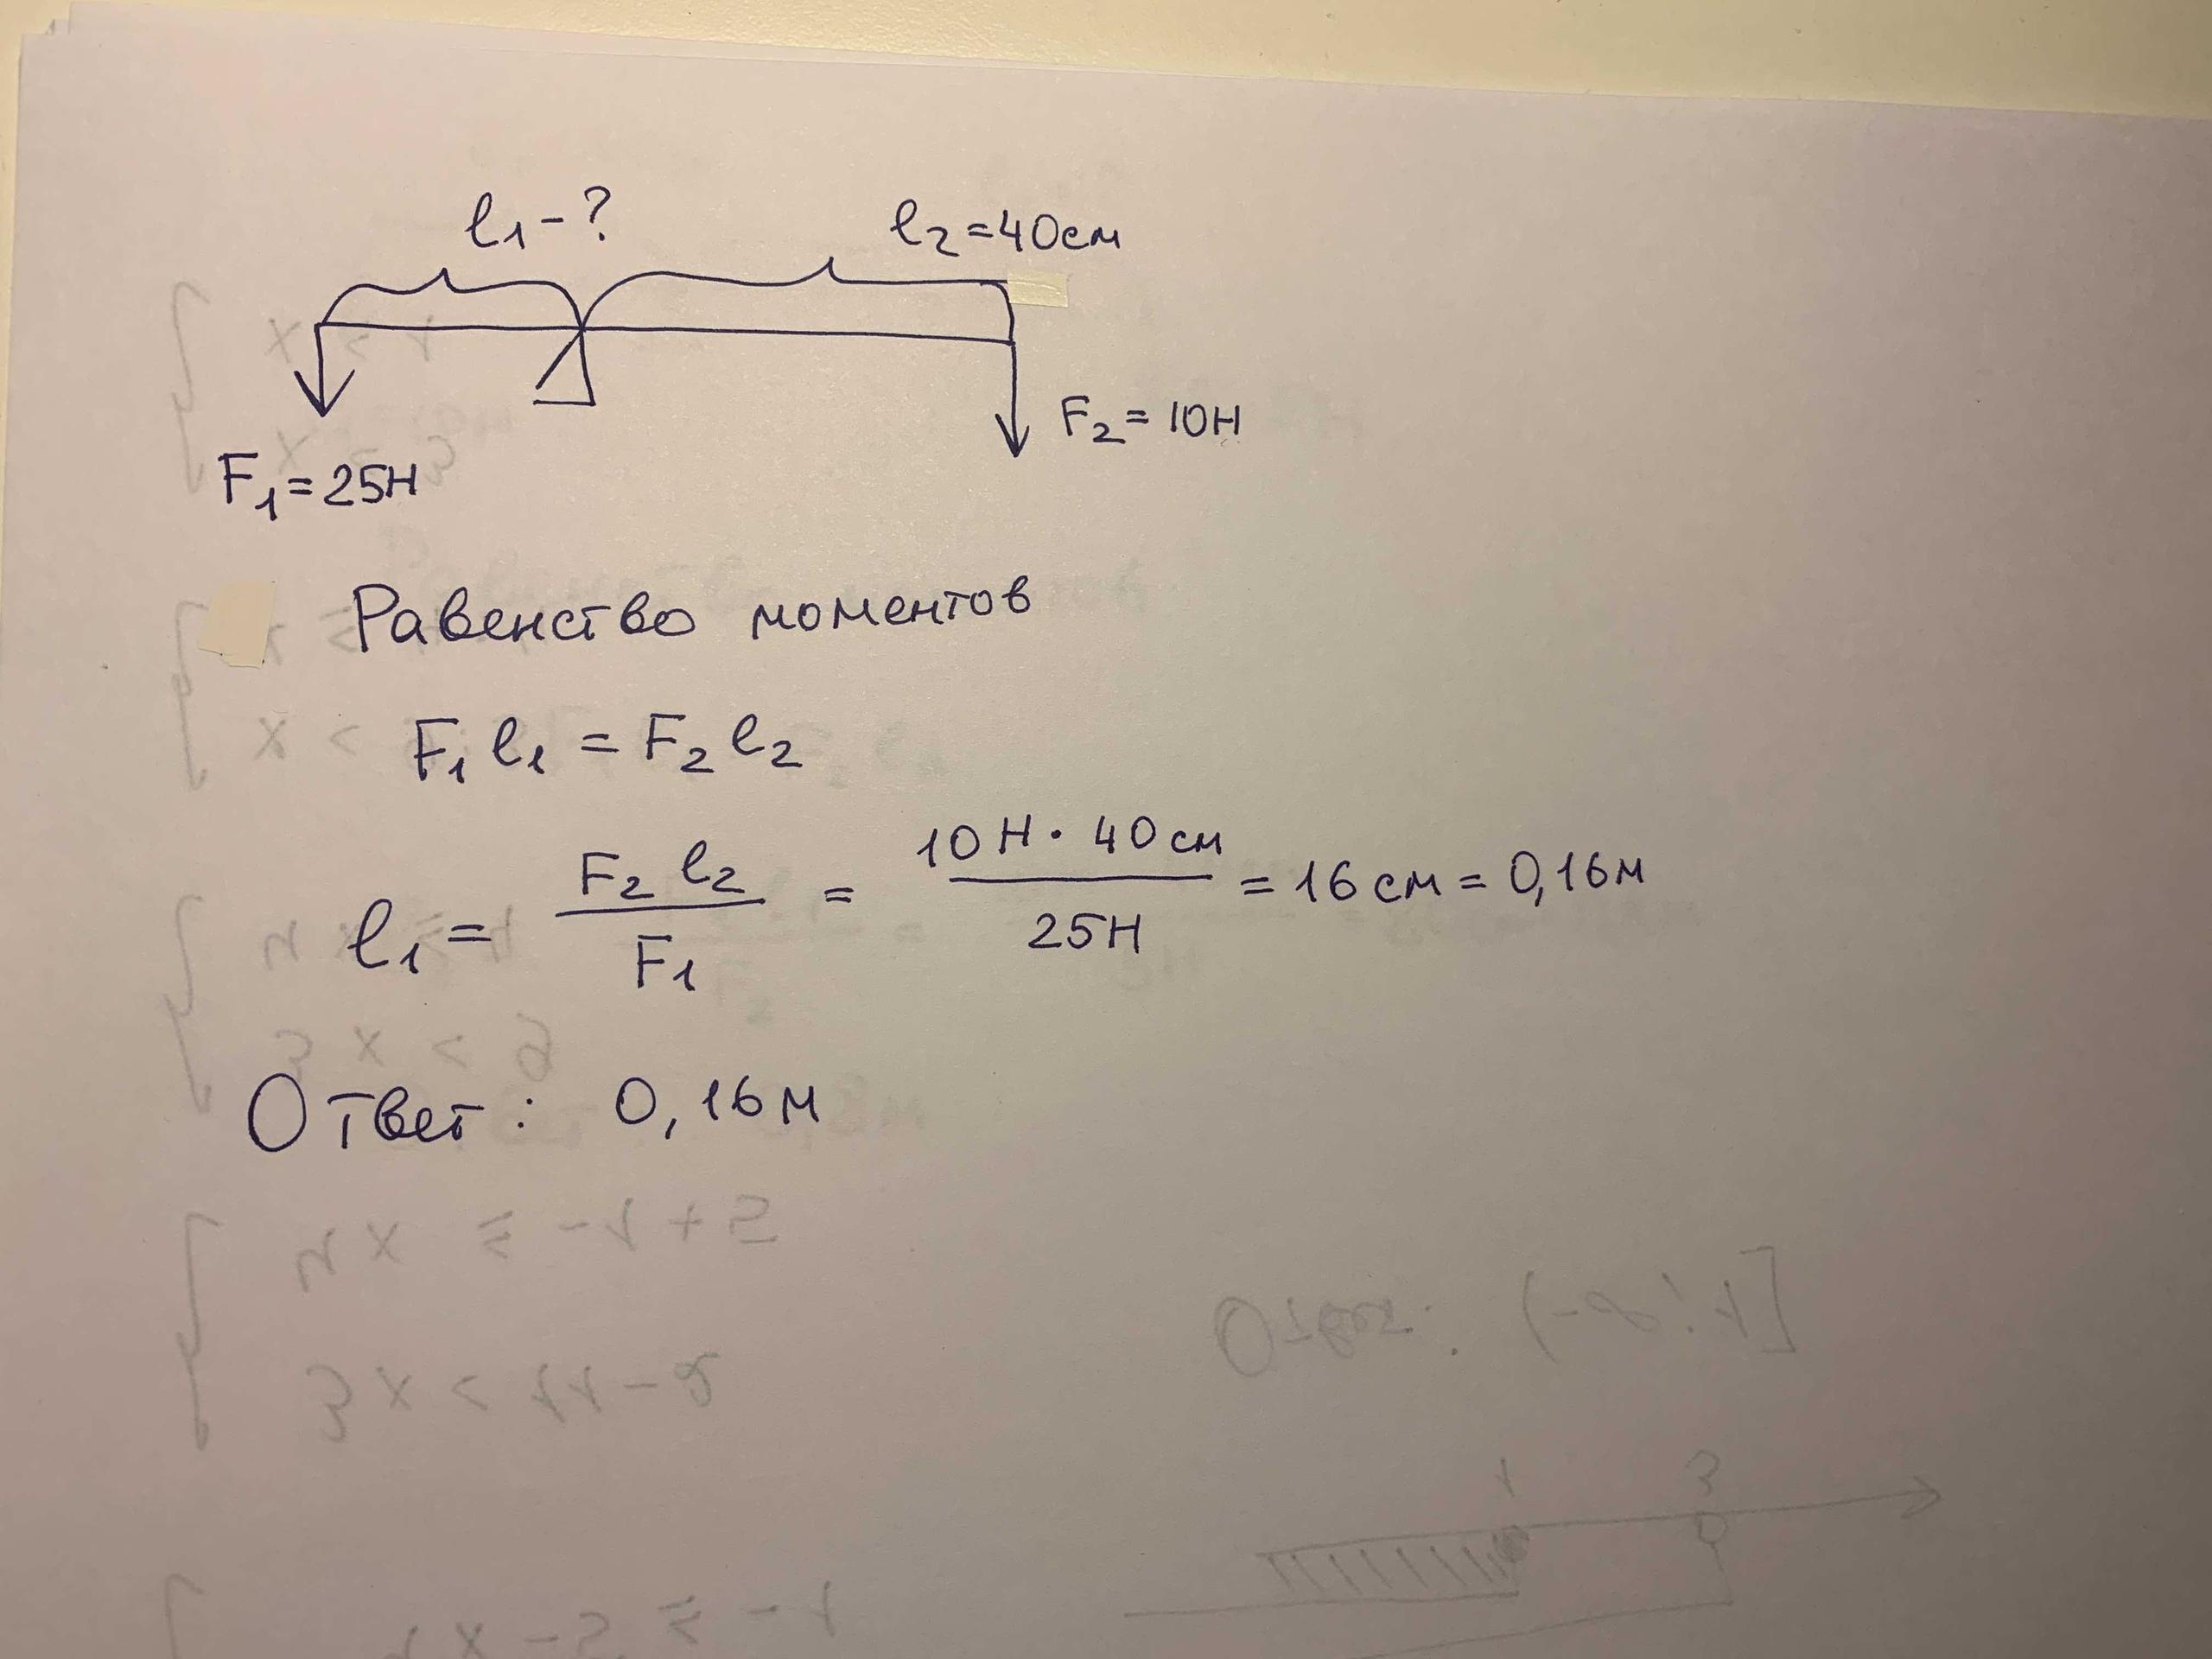 l₁ - ? l₂ = 40см
F₁ = 25Н F₂ = 10Н
Равенство моментов
F₁ l₁ = F₂ l₂
l₁ = F₂ l₂ / F₁ = 10Н · 40см / 25Н = 16 см = 0,16м
Ответ: 0,16м